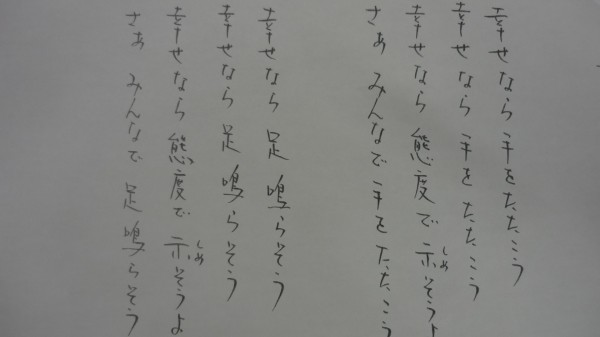 幸せなら 手を たたこう
幸せなら 手を たたこう
幸せなら 態度で 示そうよ
しめ
さあ みんなで 手を たたこう
幸せなら 足 鳴らそう
幸せなら 足 鳴らそう
幸せなら 態度で 示そうよ
しめ
さあ みんなで 足 鳴らそう